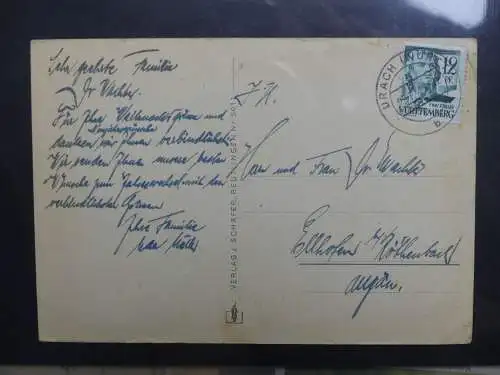 Sehr geehrte Familie
Dr Wachter.
Für Ihre Weihnachtsgrüsse und
Neujahrswünsche
danken wir Ihnen verbindlichst.
Wir senden Ihnen unsere besten
Wünsche zum Jahreswechsel mit den
verbindlichsten Grüssen
Ihre Familie
VERLAG J. SCHÄFER, REUTLINGEN
12
PF
WÜRTTEMBERG
Herr und Frau Dr Wachter
Ellhofen b/ Röthenbach
Allgäu.